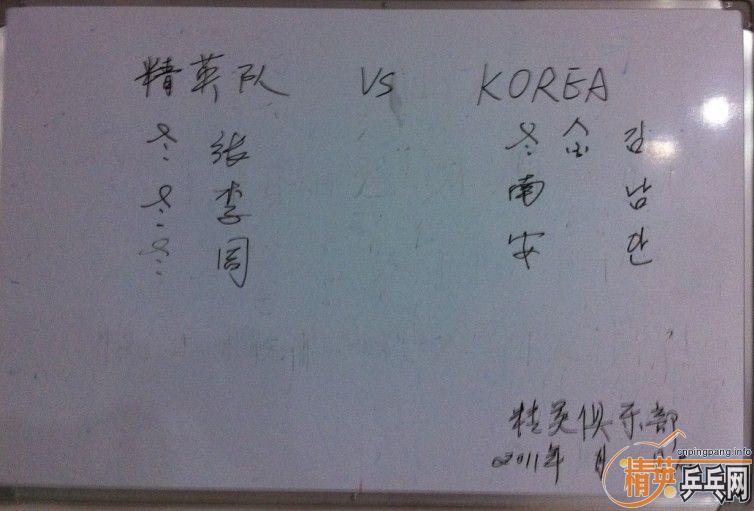 精英队 VS KOREA
冬 张 冬 金 김
冬 李 南 남
冬 周 安 안
精英俱乐部
2011年 月
cnpingpang.info
精英乒乓网